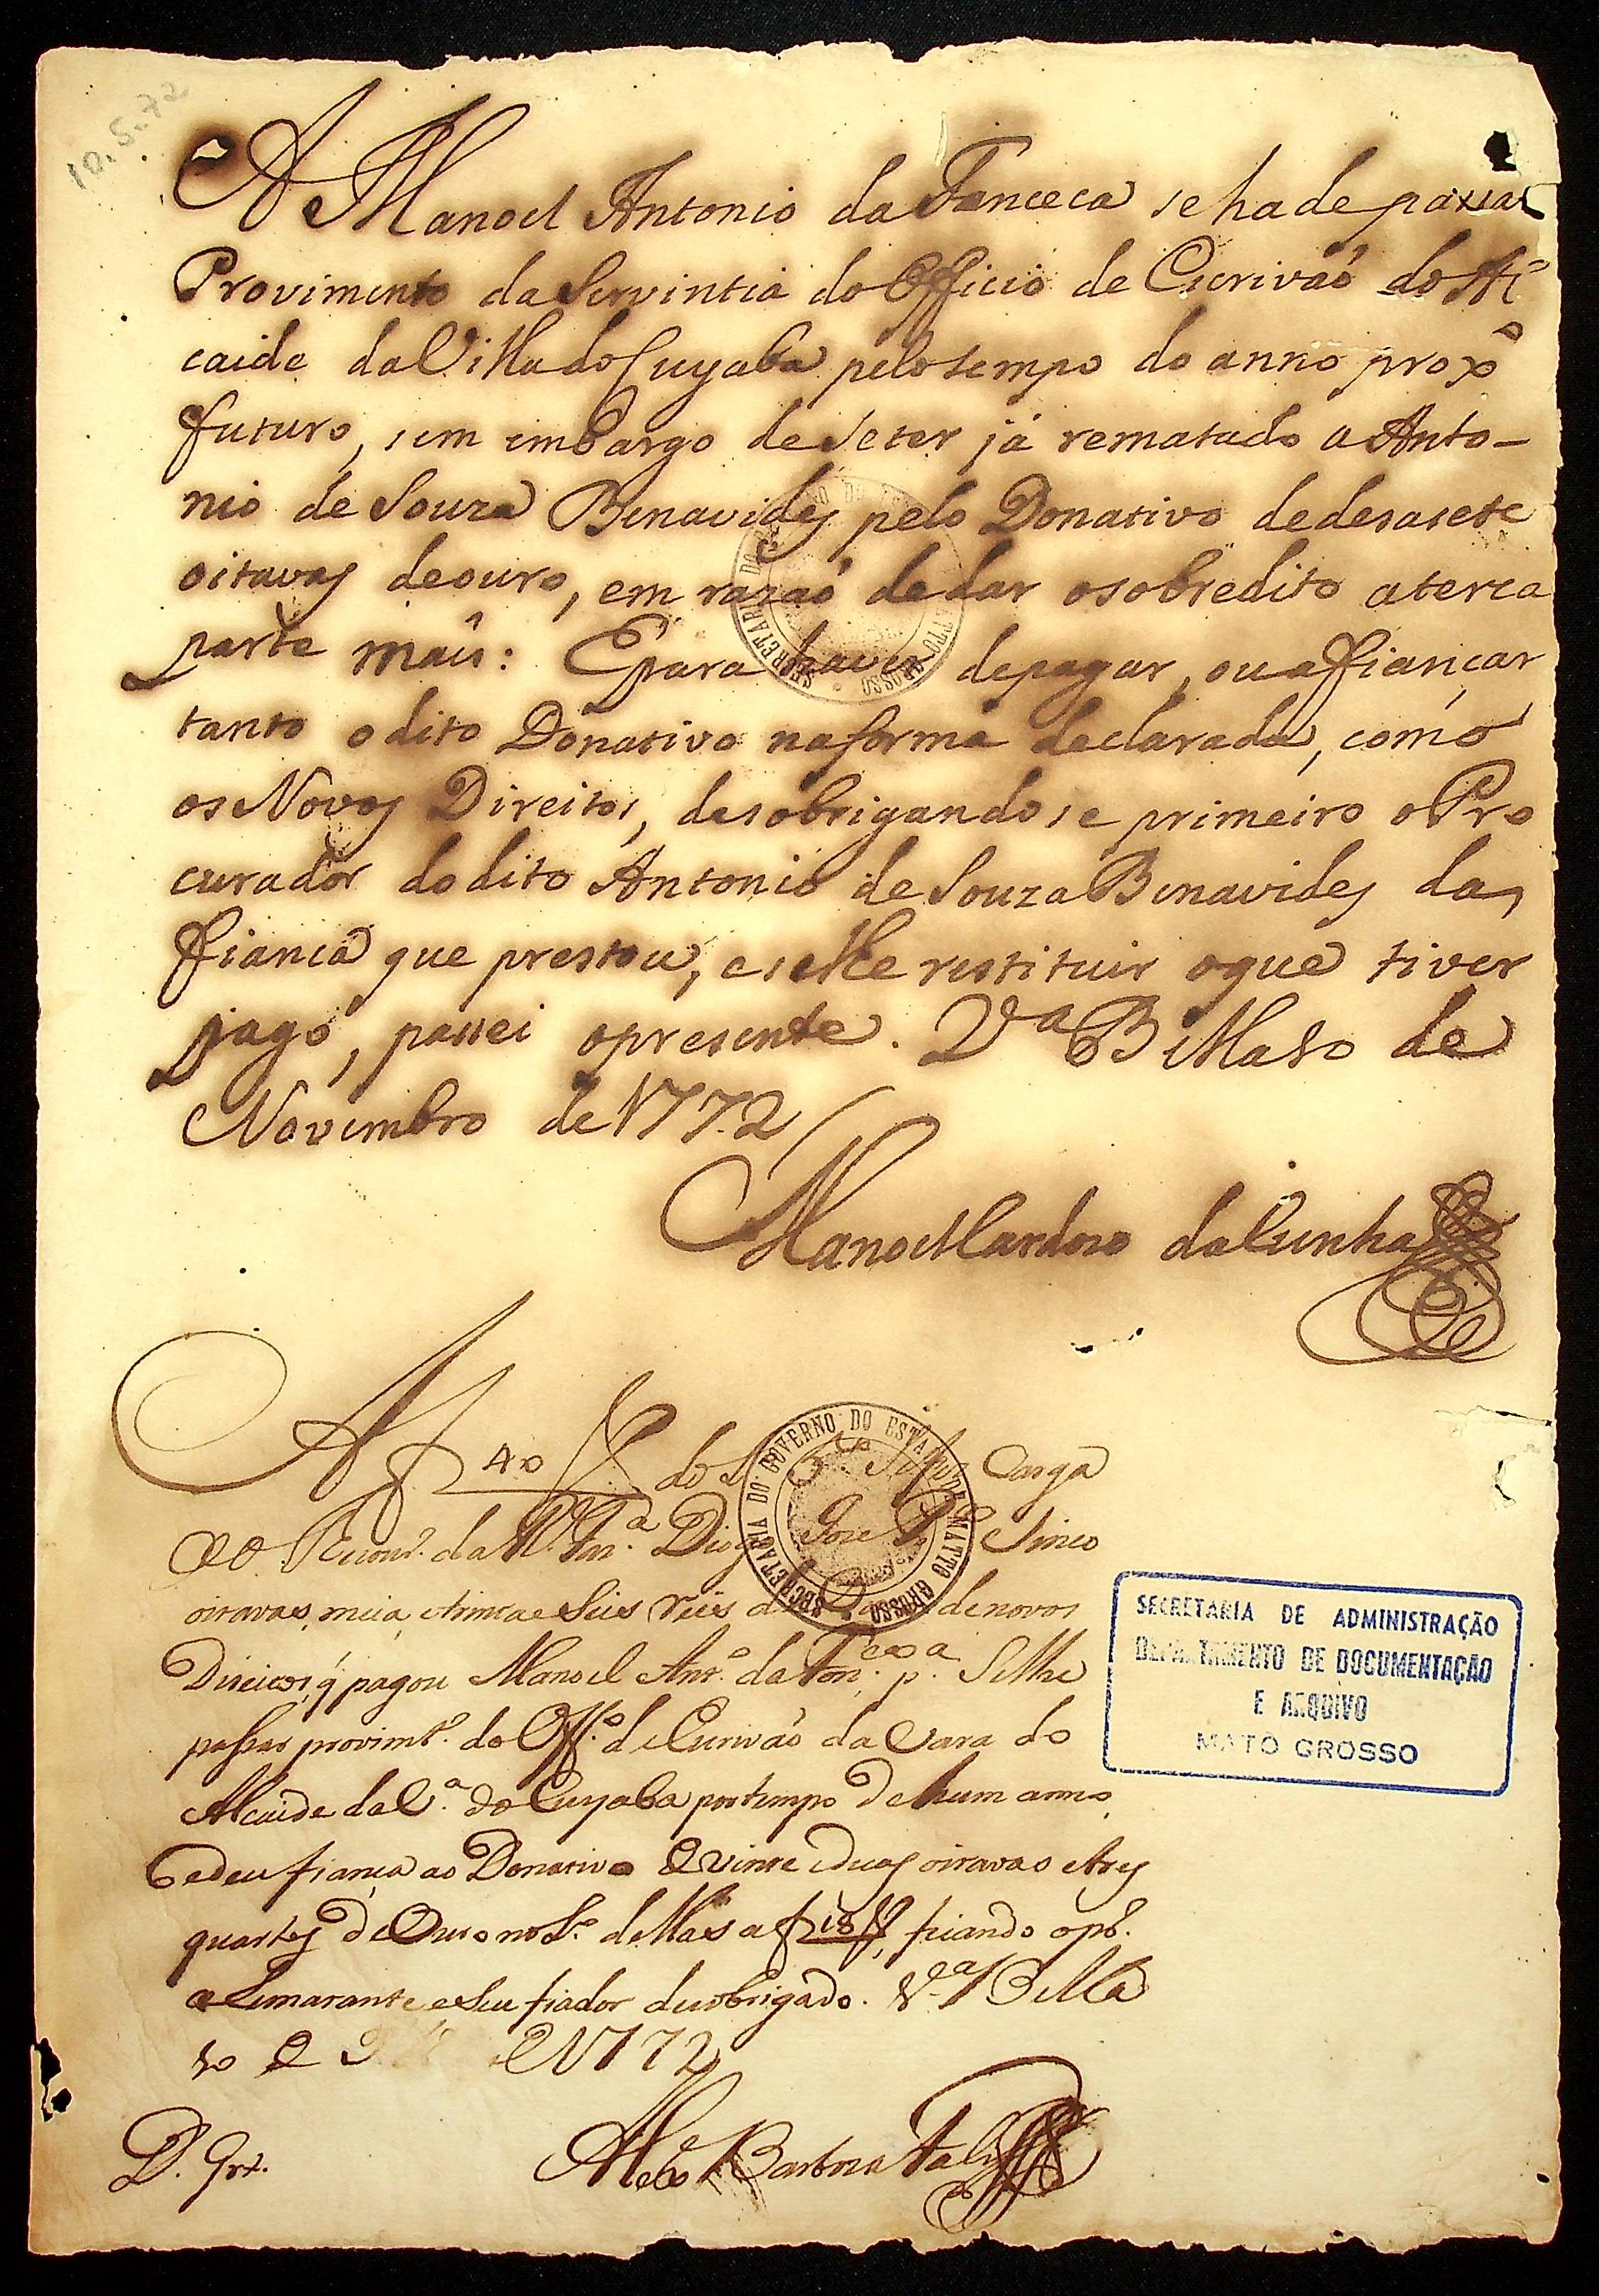 10.5.72
A Manoel Antonio da Fonceca se ha de passar
Provimento da Serventia do Officio de Escrivaõ do Al
caide da Villa do Cuyaba pelo tempo do anno proxº
futuro, sem embargo de se ter já rematado a Anto-
nio de Souza Benavides pelo Donativo de desasete
oitavas de ouro, em razaõ de dar o sobredito a terca
parte mais: E para haver de pagar, ou afiançar
tanto o dito Donativo na forma declarada, como
os Novos Direitos, desobrigandose primeiro o Pro
curador do dito Antonio de Souza Benavides da
fianca que prestou, e se lhe restituir o que tiver
pago, passei o presente. Vª Bella so de
Novembro de 1772
Manoel Cardoso da Cunha
SECRETARIA DO GOVERNO DO ESTADO DE MATTO GROSSO
A f 40 do L carga
ao da R. Faz.ª Jose Sinco
oitavas, meia, e trinta e Seis Reis de novos
Direitos, q̃ pagou Manoel Antº da Fon.ca p.ª Se lhe
passar provimtº do Off.º de Escrivaõ da Vara do
Alcaide da V.ª do Cuyaba por tempo de hum anno,
e deu fiança ao Donativo de vinte e duas oitavas e tres
quartos de Ouro no L.º dellas a f 18, ficando o pr.º
arematante e Seu fiador desobrigado. V.ª Bella
de 1772
SECRETARIA DO GOVERNO DO ESTADO DE MATTO GROSSO
SECRETARIA DE ADMINISTRAÇÃO
DEPARTAMENTO DE DOCUMENTAÇÃO
E ARQUIVO
MATO GROSSO
D. Gr.t.
Barboza